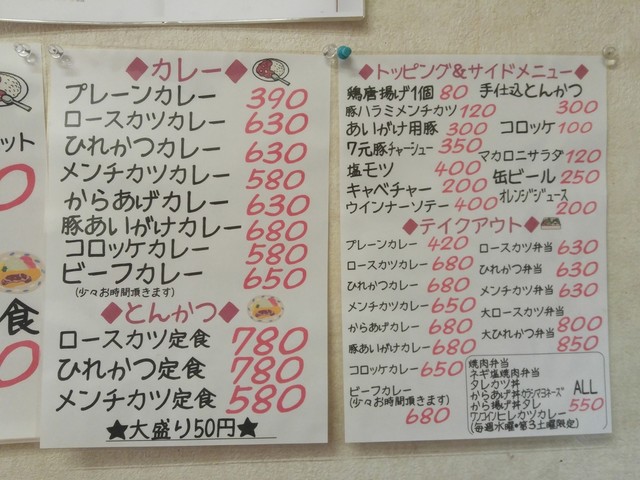 ット
食
◆カレー◆
プレーンカレー 390
ロースカツカレー 630
ひれかつカレー 630
メンチカツカレー 580
からあげカレー 630
豚あいがけカレー 680
コロッケカレー 580
ビーフカレー 650
(少々お時間頂きます)
◆とんかつ◆
ロースカツ定食 780
ひれかつ定食 780
メンチカツ定食 580
★大盛り50円★
◆トッピング&サイドメニュー◆
鶏唐揚げ1個 80
豚ハラミメンチカツ 120
あいがけ用豚 300
7元豚チャーシュー 350
塩モツ 400
キャベチャー 200
ウインナーソテー 400
手仕込とんかつ 300
コロッケ 100
マカロニサラダ 120
缶ビール 250
オレンジジュース 200
◆テイクアウト◆
プレーンカレー 420
ロースカツカレー 680
ひれかつカレー 680
メンチカツカレー 650
からあげカレー 680
豚あいがけカレー 680
コロッケカレー 650
ビーフカレー
(少々お時間頂きます) 680
ロースカツ弁当 630
ひれかつ弁当 630
メンチカツ弁当 630
大ロースカツ弁当 800
大ひれかつ弁当 850
焼肉弁当
ネギ塩焼肉弁当
タレカツ丼
からあげ丼カラシマヨネーズ
から揚げ丼タレ
ワンコインヒレカツカレー
(毎週水曜・第3土曜限定)
ALL 550